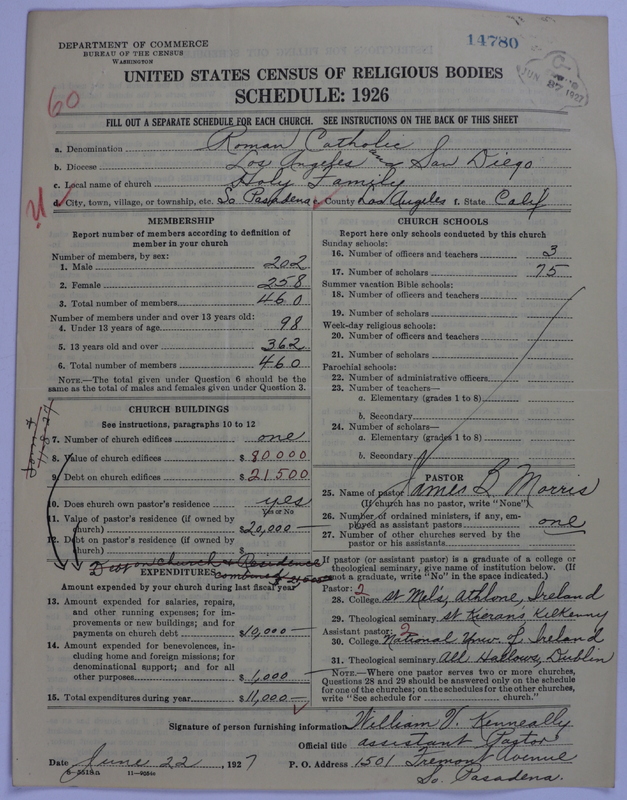 14780
DEPARTMENT OF COMMERCE
BUREAU OF THE CENSUS
WASHINGTON
JUN 27 1927
UNITED STATES CENSUS OF RELIGIOUS BODIES
SCHEDULE: 1926
60
FILL OUT A SEPARATE SCHEDULE FOR EACH CHURCH. SEE INSTRUCTIONS ON THE BACK OF THIS SHEET
a. Denomination Roman Catholic
b. Diocese Los Angeles and San Diego
c. Local name of church Holy Family
d. City, town, village, or township, etc. So Pasadena e. County Los Angeles f. State Calif
MEMBERSHIP
Report number of members according to definition of
member in your church
Number of members, by sex:
1. Male 202
2. Female 258
3. Total number of members 460
Number of members under and over 13 years old:
4. Under 13 years of age 98
5. 13 years old and over 362
6. Total number of members 460
NOTE.—The total given under Question 6 should be the
same as the total of males and females given under Question 3.
CHURCH BUILDINGS
See instructions, paragraphs 10 to 12
7. Number of church edifices one
8. Value of church edifices $ 80000
9. Debt on church edifices $ 21,500
10. Does church own pastor's residence yes
Yes or No
11. Value of pastor's residence (if owned by
church) $ 20,000
12. Debt on pastor's residence (if owned by
church) $
Debt on church & Residence
combined
EXPENDITURES
Amount expended by your church during last fiscal year
13. Amount expended for salaries, repairs,
and other running expenses; for im-
provements or new buildings; and for
payments on church debt $ 10,000
14. Amount expended for benevolences, in-
cluding home and foreign missions; for
denominational support; and for all
other purposes $ 1,000
15. Total expenditures during year $ 11,000
CHURCH SCHOOLS
Report here only schools conducted by this church
Sunday schools:
16. Number of officers and teachers 3
17. Number of scholars 75
Summer vacation Bible schools:
18. Number of officers and teachers
19. Number of scholars
Week-day religious schools:
20. Number of officers and teachers
21. Number of scholars
Parochial schools:
22. Number of administrative officers
23. Number of teachers—
a. Elementary (grades 1 to 8)
b. Secondary
24. Number of scholars—
a. Elementary (grades 1 to 8)
b. Secondary
PASTOR
25. Name of pastor James B Morris
(If church has no pastor, write "None")
26. Number of ordained ministers, if any, em-
ployed as assistant pastors one
27. Number of other churches served by the
pastor or his assistants
If pastor (or assistant pastor) is a graduate of a college or
theological seminary, give name of institution below. (If
not a graduate, write "No" in the space indicated.)
Pastor: 2
28. College St Mel's, Athlone, Ireland
29. Theological seminary St Kierans Kilkenny
Assistant pastor: 2
30. College National Univ. of Ireland
31. Theological seminary All Hallows, Dublin
NOTE.—Where one pastor serves two or more churches,
Questions 28 and 29 should be answered only on the schedule
for one of the churches; on the schedules for the other churches,
write "See schedule for church."
Signature of person furnishing information William V. Kenneally
Official title assistant Pastor
Date June 22, 1927 P. O. Address 1501 Fremont Avenue
So. Pasadena.